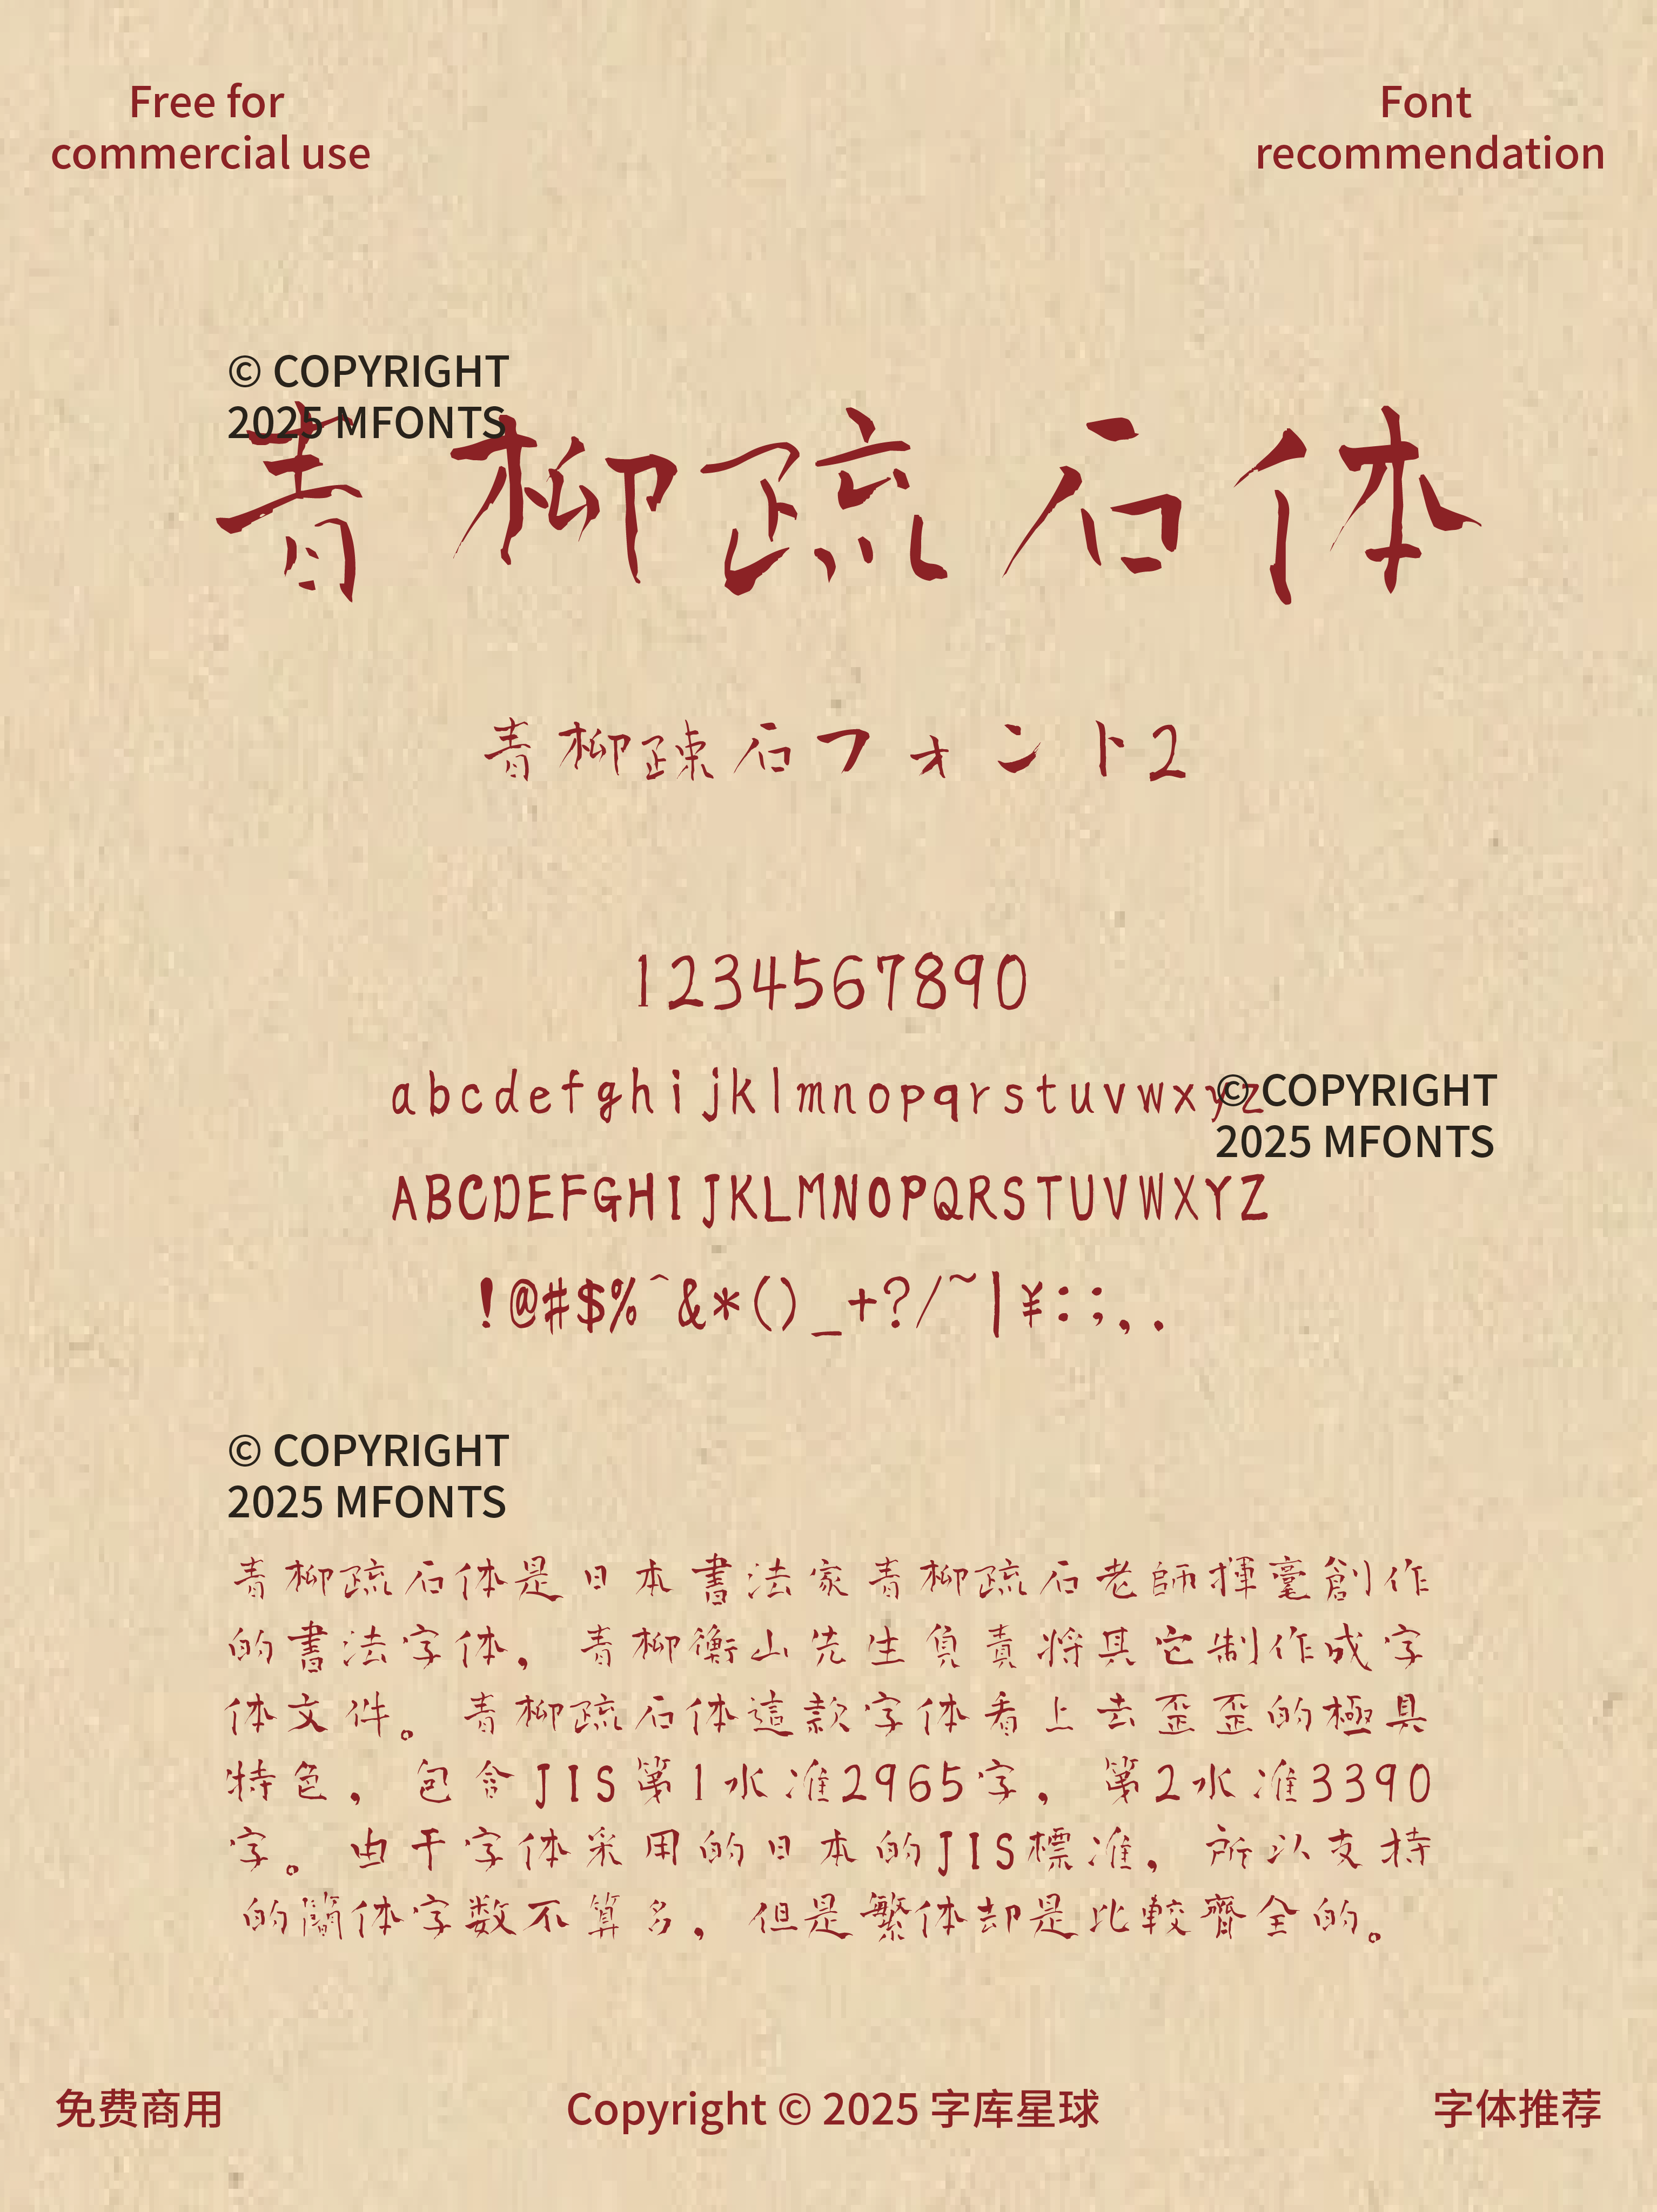 Free for
commercial use
Font
recommendation
© COPYRIGHT
2025 MFONTS
青柳疏石体
青柳疎石フォント2
1234567890
abcdefghijklmnopqrstuvwxyz
© COPYRIGHT
2025 MFONTS
ABCDEFGHIJKLMNOPQRSTUVWXYZ
!@#$%^&*()_+?/~|¥:;,.
© COPYRIGHT
2025 MFONTS
青柳疏石体是日本書法家青柳疏石老師揮毫創作
的書法字体，青柳衡山先生負責將其它制作成字
体文件。青柳疏石体這款字体看上去歪歪的極具
特色，包含JIS第1水准2965字，第2水准3390
字。由于字体采用的日本的JIS標准，所以支持
的簡体字数不算多，但是繁体却是比較齊全的。
免费商用
Copyright © 2025 字库星球
字体推荐